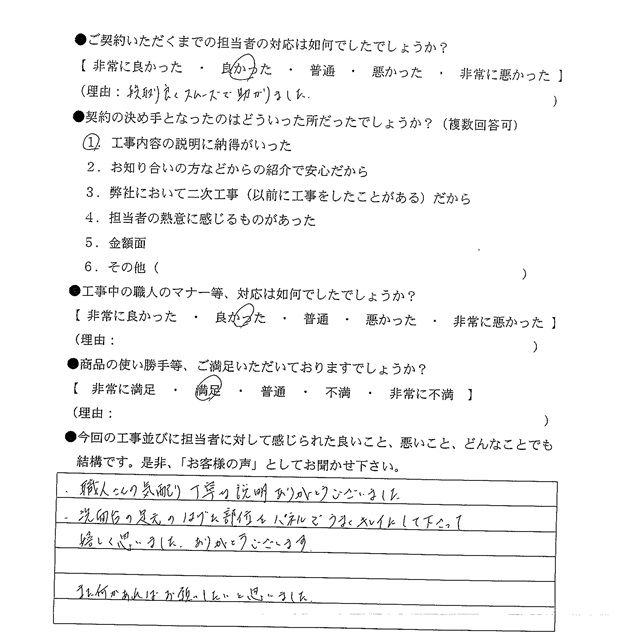 ●ご契約いただくまでの担当者の対応は如何でしたでしょうか？
【 非常に良かった ・ 良かった ・ 普通 ・ 悪かった ・ 非常に悪かった 】
(理由：段取り良くスムーズで助かりました. )
●契約の決め手となったのはどういった所だったでしょうか？（複数回答可）
1. 工事内容の説明に納得がいった
2．お知り合いの方などからの紹介で安心だから
3．弊社において二次工事（以前に工事をしたことがある）だから
4．担当者の熱意に感じるものがあった
5．金額面
6．その他（ ）
●工事中の職人のマナー等、対応は如何でしたでしょうか？
【 非常に良かった ・ 良かった ・ 普通 ・ 悪かった ・ 非常に悪かった 】
(理由： )
●商品の使い勝手等、ご満足いただいておりますでしょうか？
【 非常に満足 ・ 満足 ・ 普通 ・ 不満 ・ 非常に不満 】
(理由： )
●今回の工事並びに担当者に対して感じられた良いこと、悪いこと、どんなことでも
結構です。是非、「お客様の声」としてお聞かせ下さい。
・職人さんの気配り 丁寧な説明 ありがとうございました
・洗面台の足元のはげた部位をパネルでうまくキレイにして下さって
嬉しく思いました. ありがとうございます.
また何かあればお願いしたいと思いました.